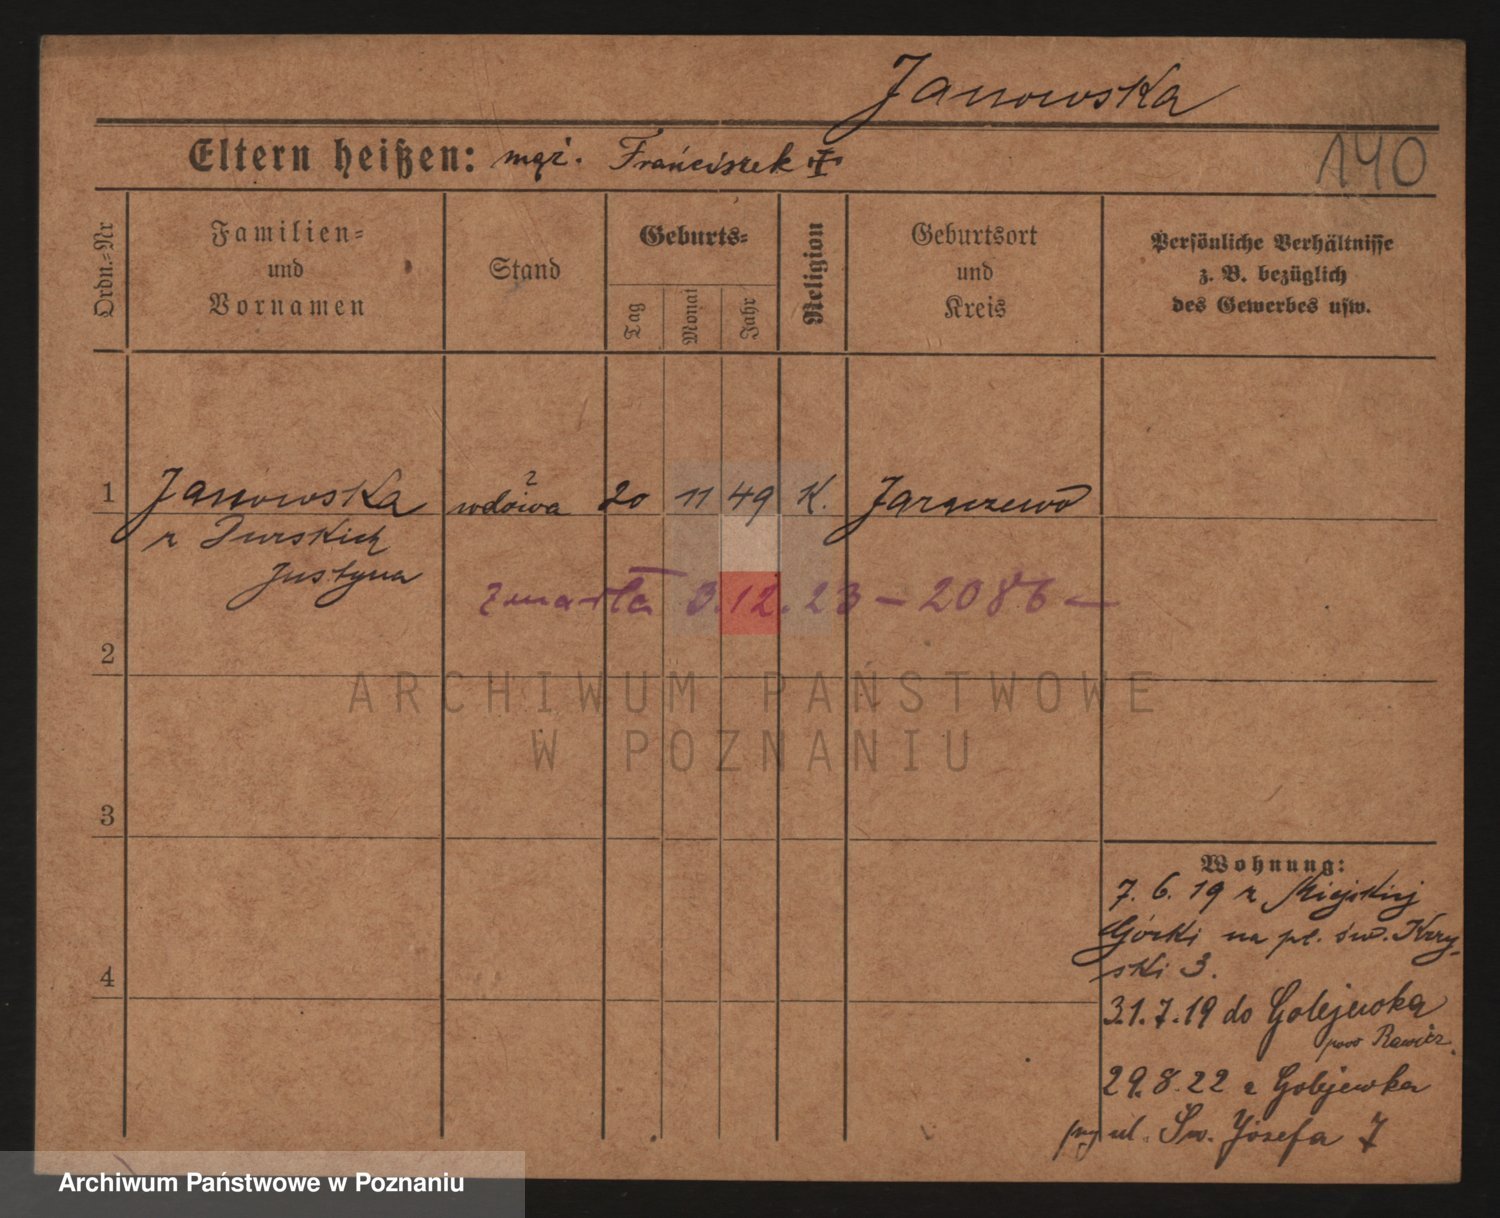 Janowska
Eltern heißen: męż. Franciszek
140
Ordn.=Nr
Familien=
und
Vornamen
Stand
Geburts=
Tag
Monat
Jahr
Religion
Geburtsort
und
Kreis
Persönliche Verhältnisse
z. B. bezüglich
des Gewerbes usw.
1 Janowska wdowa 20 11 49 K. Jaraczewo
z Durskich
Justyna
zmarła 3.12.23 – 2086 –
2
ARCHIWUM PAŃSTWOWE
W POZNANIU
3
4
Wohnung:
7. 6. 19 z Miejskiej
Górki na pl. św. Krzy-
ski 3.
31.7.19 do Golejewka
pow Rawicz.
29.8.22 z Golejewka
ul. Św. Józefa 7
Archiwum Państwowe w Poznaniu